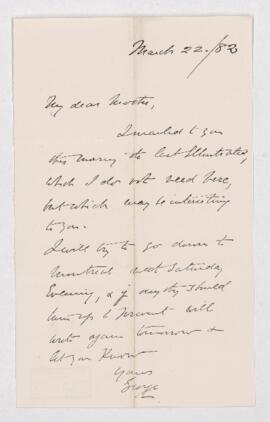 March 22./83
My dear Mother,
I mailed to you
this morng the last Illustrated,
which I do not need here,
but which may be interesting
to you.
I will try to go down to
Montreal next Saturday
Evening, & if anything should
turn up to prevent will
write again tomorrow &
let you know
Yours
George